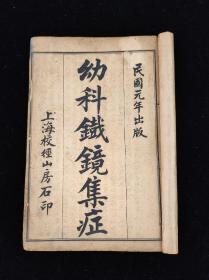 民國元年出版
幼科鐵鏡集症
上海校經山房石印